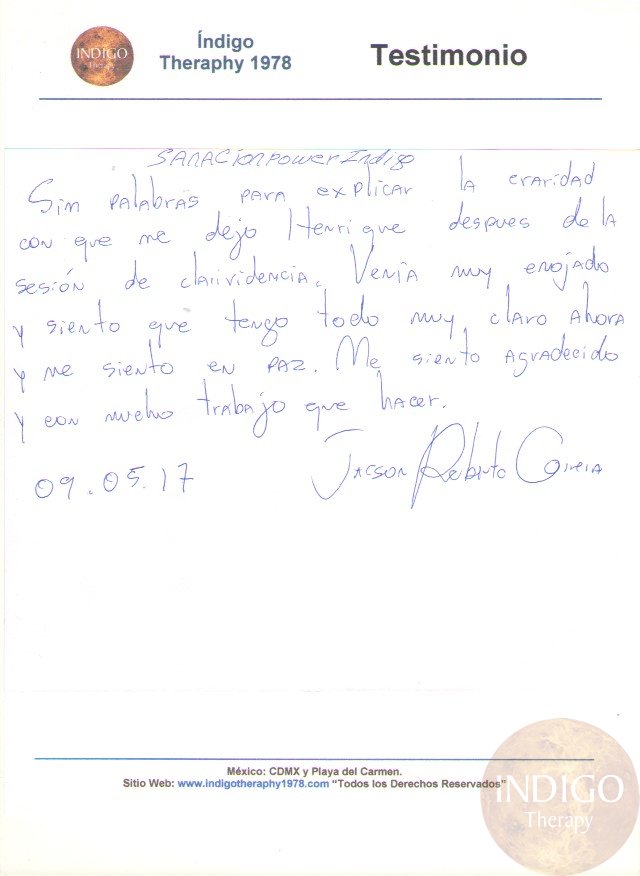 INDIGO
Therapy
Índigo
Theraphy 1978
Testimonio
SANACION POWER Indigo
Sim palabras para explicar la craridad
con que me dejo Henrique despues de la
sesión de clarividencia. Venia muy enojado
y siento que tengo todo muy claro ahora
y me siento en paz. Me siento agradecido
y con mucho trabajo que hacer.
09.05.17
Jacson Roberto
México: CDMX y Playa del Carmen.
Sitio Web: www.indigotheraphy1978.com “Todos los Derechos Reservados”
INDIGO
Therapy